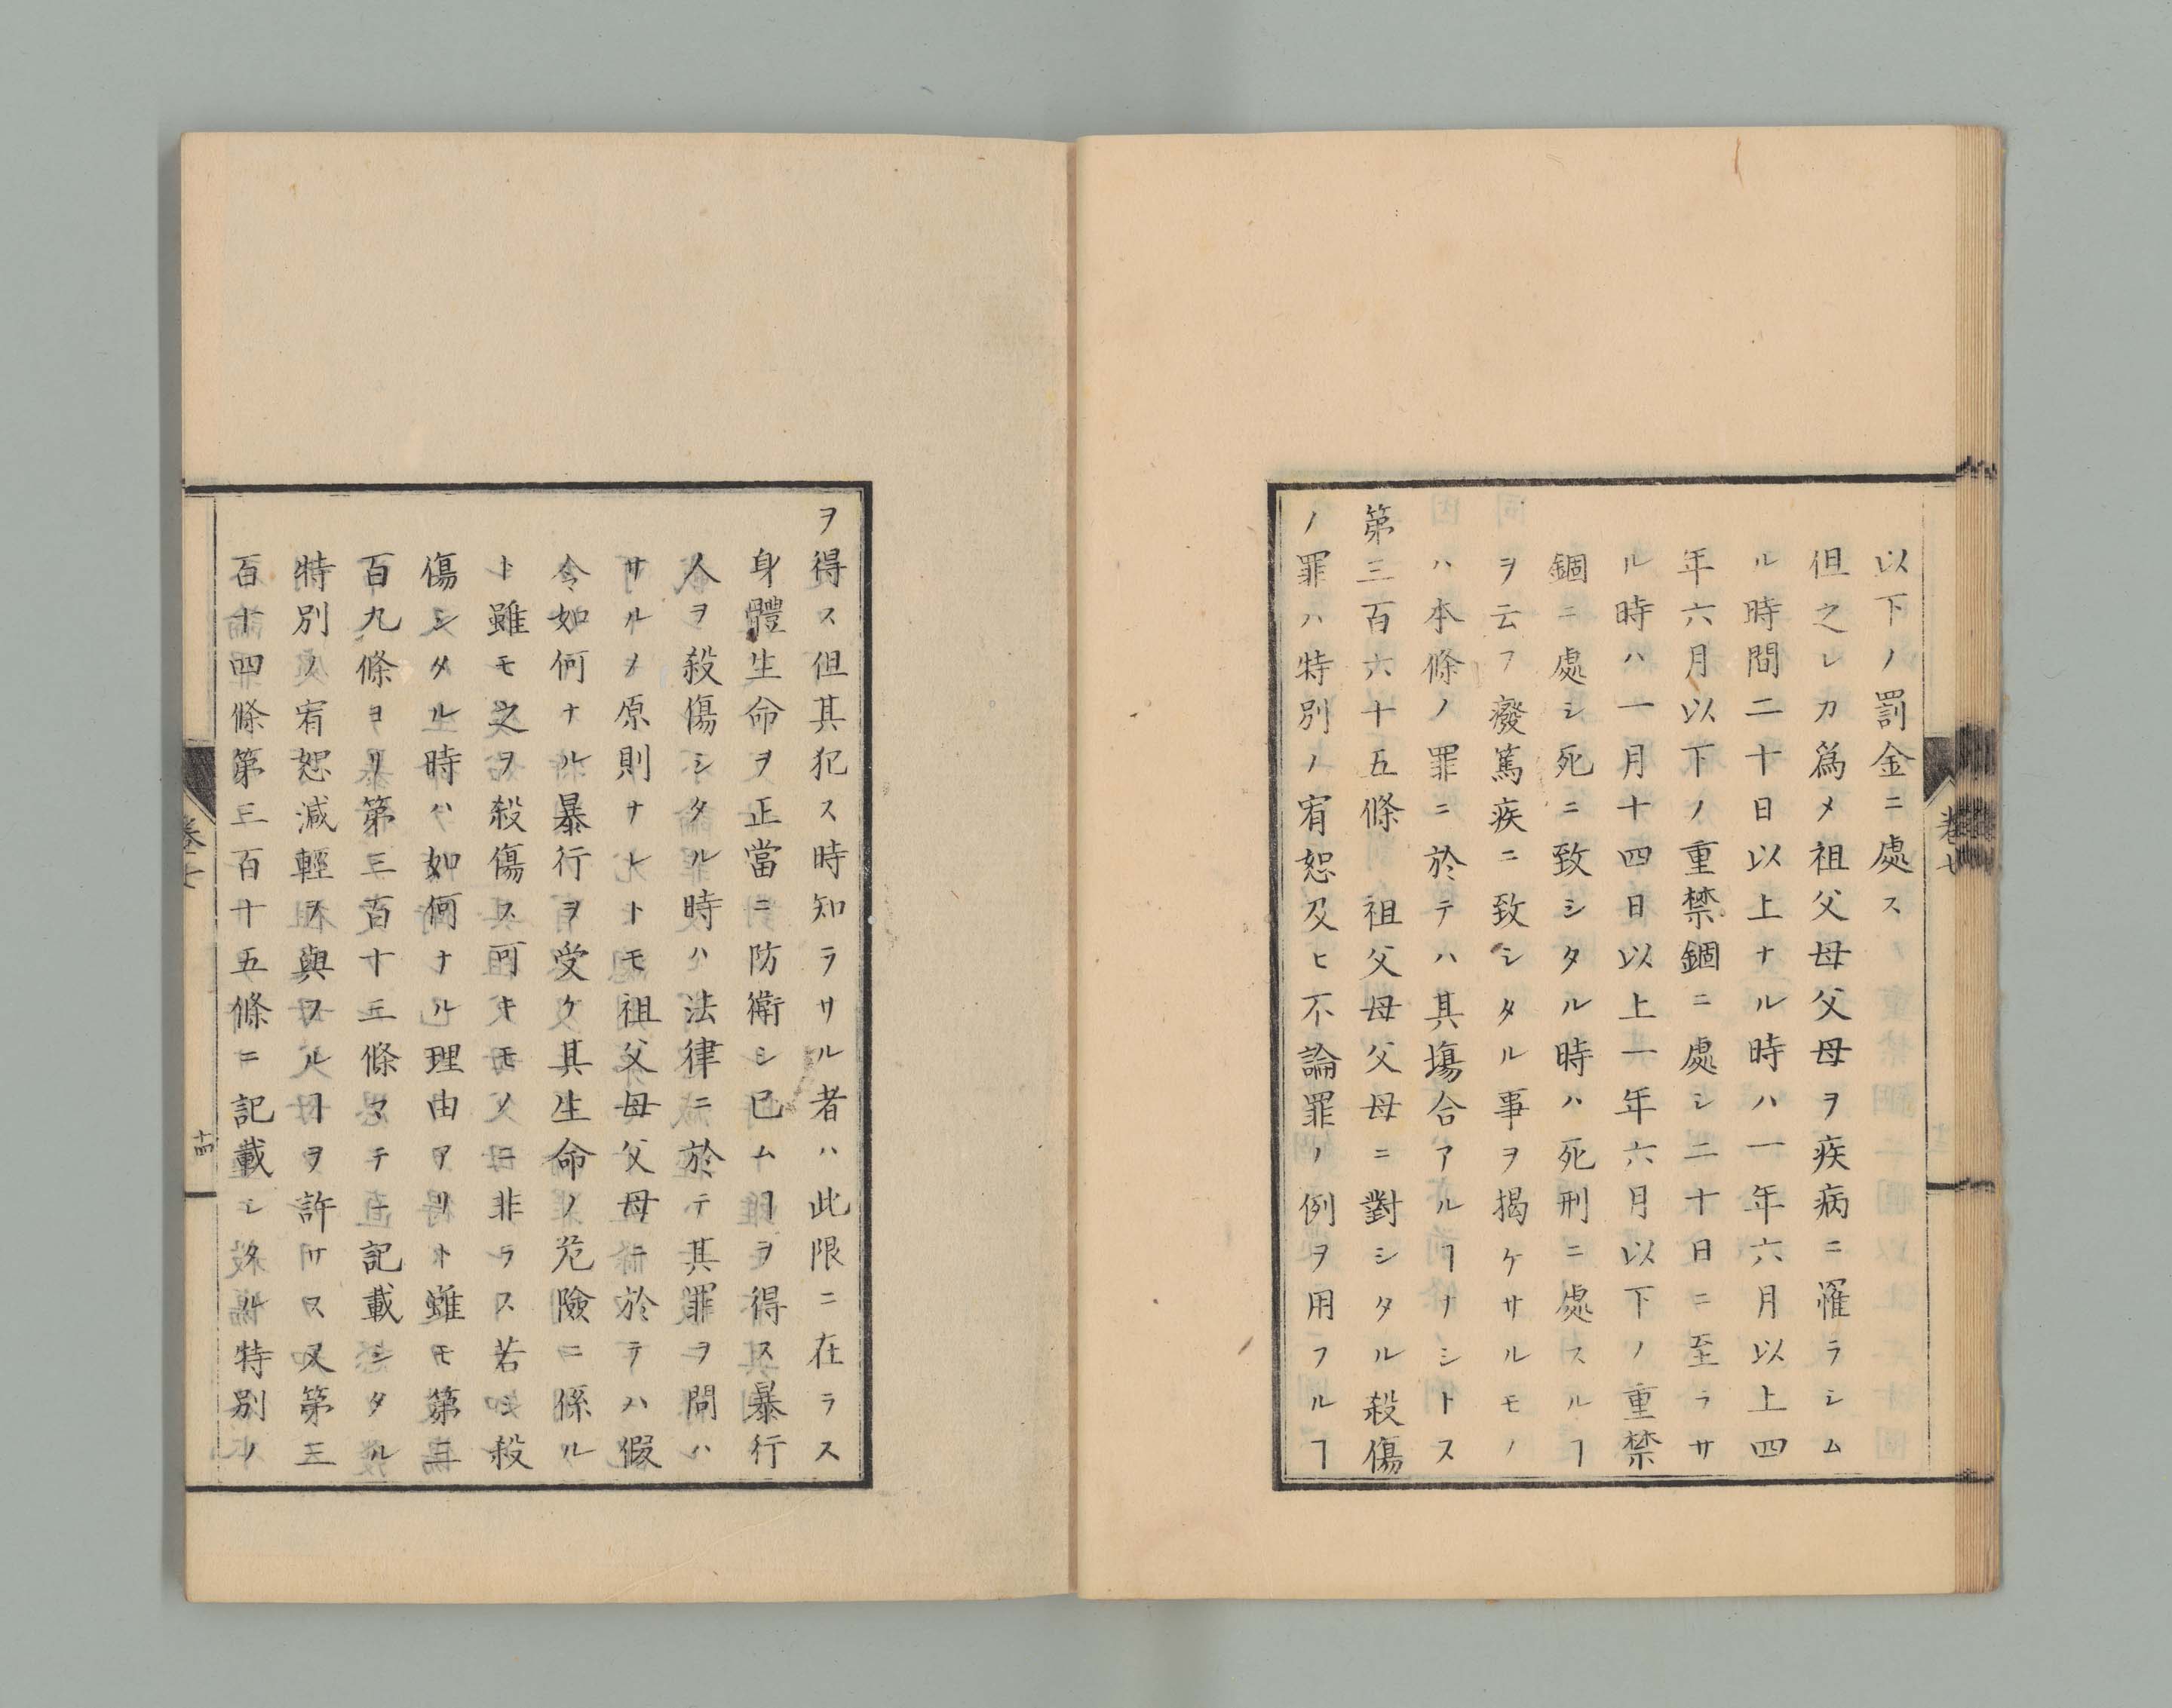 以下ノ罰金ニ處ス
但之レカ爲メ祖父母父母ヲ疾病ニ罹ラシム
ル時間二十日以上ナル時ハ一年六月以上四
年六月以下ノ重禁錮ニ處シ二十日ニ至ラサ
ル時ハ一月十四日以上一年六月以下ノ重禁
錮ニ處シ死ニ致シタル時ハ死刑ニ處スルヿ
ヲ云フ癈篤疾ニ致シタル事ヲ揭ケサルモノ
ハ本條ノ罪ニ於テハ其塲合アルヿナシトス
第三百六十五條 祖父母父母ニ對シタル殺傷
ノ罪ハ特別ノ宥恕及ヒ不論罪ノ例ヲ用フルヿ
卷七
ヲ得ス但其犯ス時知ラサル者ハ此限ニ在ラス
身體生命ヲ正當ニ防衛シ已ムヿヲ得ス暴行
人ヲ殺傷シタル時ハ法律ニ於テ其罪ヲ問ハ
サルヲ原則ナレトモ祖父母父母ニ於テハ假
令如何ナル暴行ヲ受ケ其生命ノ危險ニ係ル
ト雖モ之ヲ殺傷ス可キモノニ非ラス若シ殺
傷シタル時ハ如何ナル理由アリト雖モ第三
百九條ヨリ第三百十三條マテニ記載シタル
特別ノ宥恕減輕ヲ與フルヿヲ許サス又第三
百十四條第三百十五條ニ記載シタル特別ノ
卷七
十四